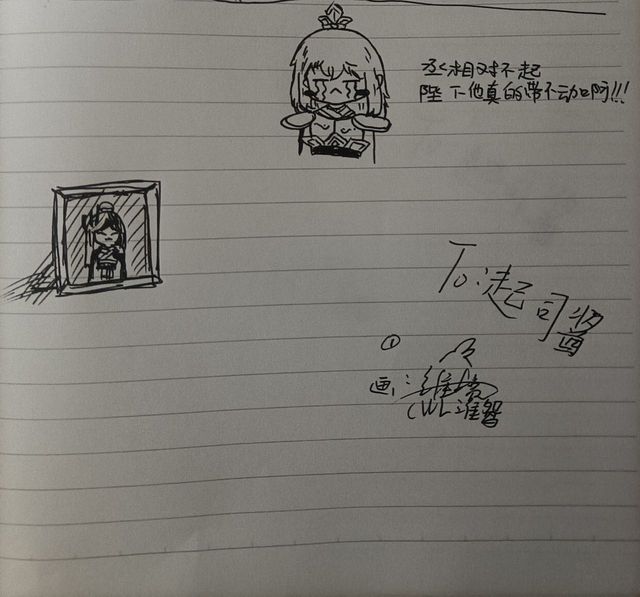 丞相对不起
陛下他真的带不动啊!!!
To:起司酱
①
画:
CWL淮智